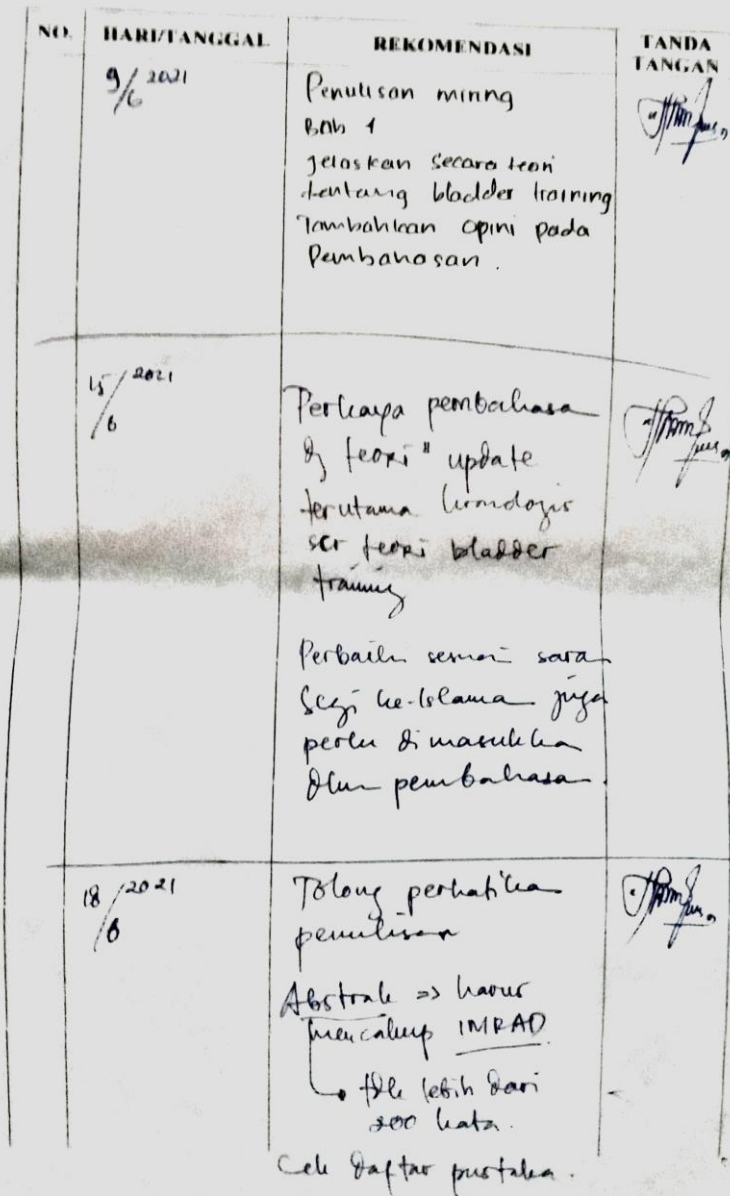 NO. HARI/TANGGAL REKOMENDASI TANDA TANGAN
9/6 2021
Penulisan miring
Bab 1
jelaskan secara teori
tentang bladder training
Tambahkan opini pada
Pembahasan.
15/6 2021
Perkaya pembahasa
dg teori" update
terutama kronologis
scr teori bladder
training
Perbaiki sesuai saran
Segi ke-Islama juga
perlu dimasukka
dlm pembahasa.
18/6 2021
Tolong perhatikan
penulisan
Abstrak => harus
mencakup IMRAD
tdk lebih dari
200 kata.
Cek Daftar pustaka.